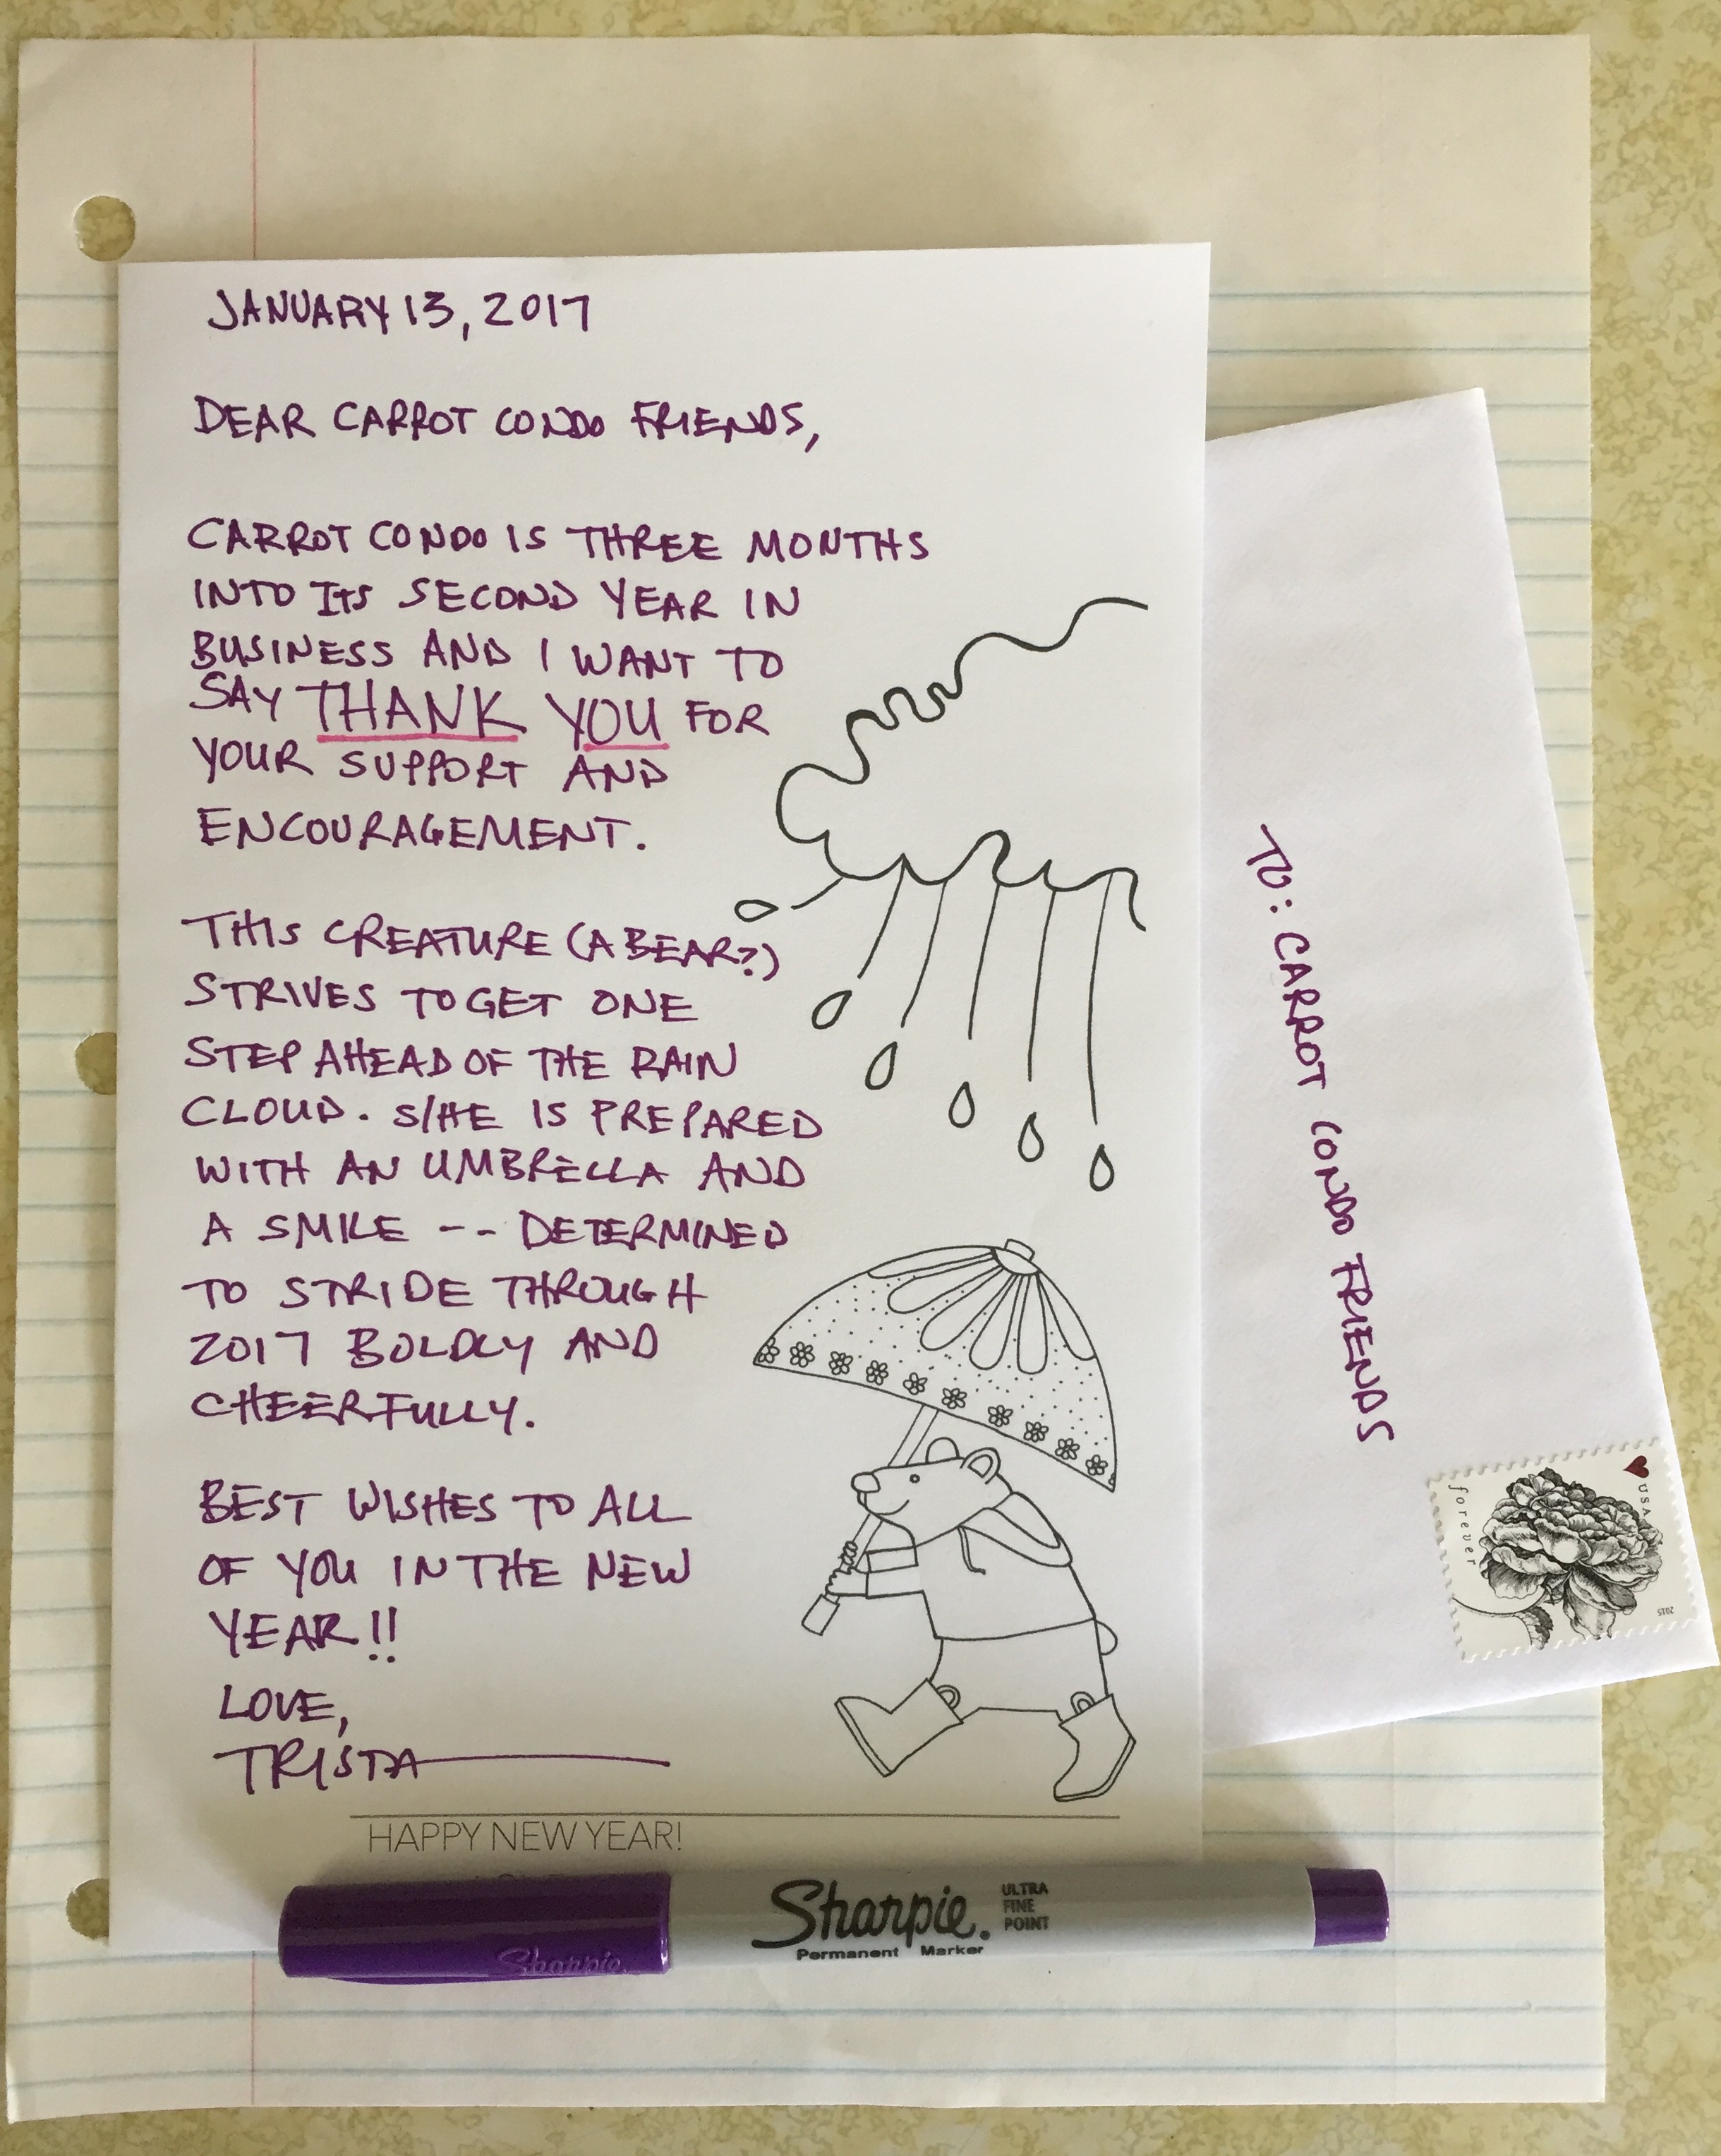 JANUARY 13, 2017
DEAR CARROT CONDO FRIENDS,
CARROT CONDO IS THREE MONTHS
INTO ITS SECOND YEAR IN
BUSINESS AND I WANT TO
SAY THANK YOU FOR
YOUR SUPPORT AND
ENCOURAGEMENT.
THIS CREATURE (A BEAR?)
STRIVES TO GET ONE
STEP AHEAD OF THE RAIN
CLOUD. S/HE IS PREPARED
WITH AN UMBRELLA AND
A SMILE -- DETERMINED
TO STRIDE THROUGH
2017 BOLDLY AND
CHEERFULLY.
BEST WISHES TO ALL
OF YOU IN THE NEW
YEAR!!
LOVE,
TRISTA
HAPPY NEW YEAR!
TO: CARROT CONDO FRIENDS
USA
forever
2015
Sharpie.
Sharpie.
ULTRA
FINE
POINT
Permanent Marker